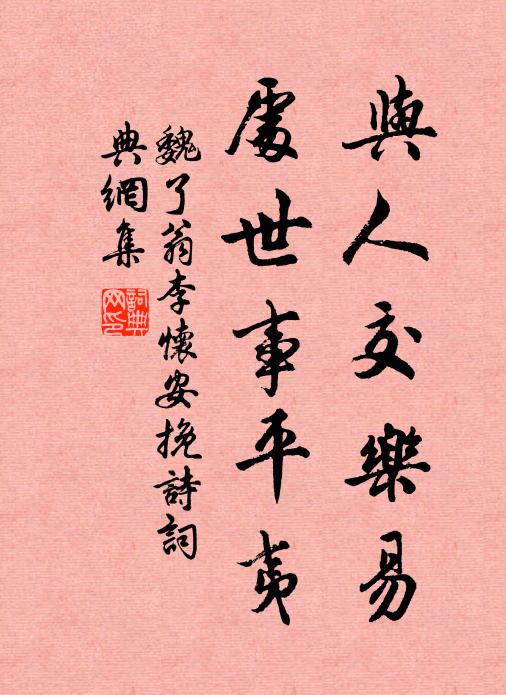 與人交樂易
處世事平夷
魏了翁李懷安挽詩詞
典網集
詞典
网印